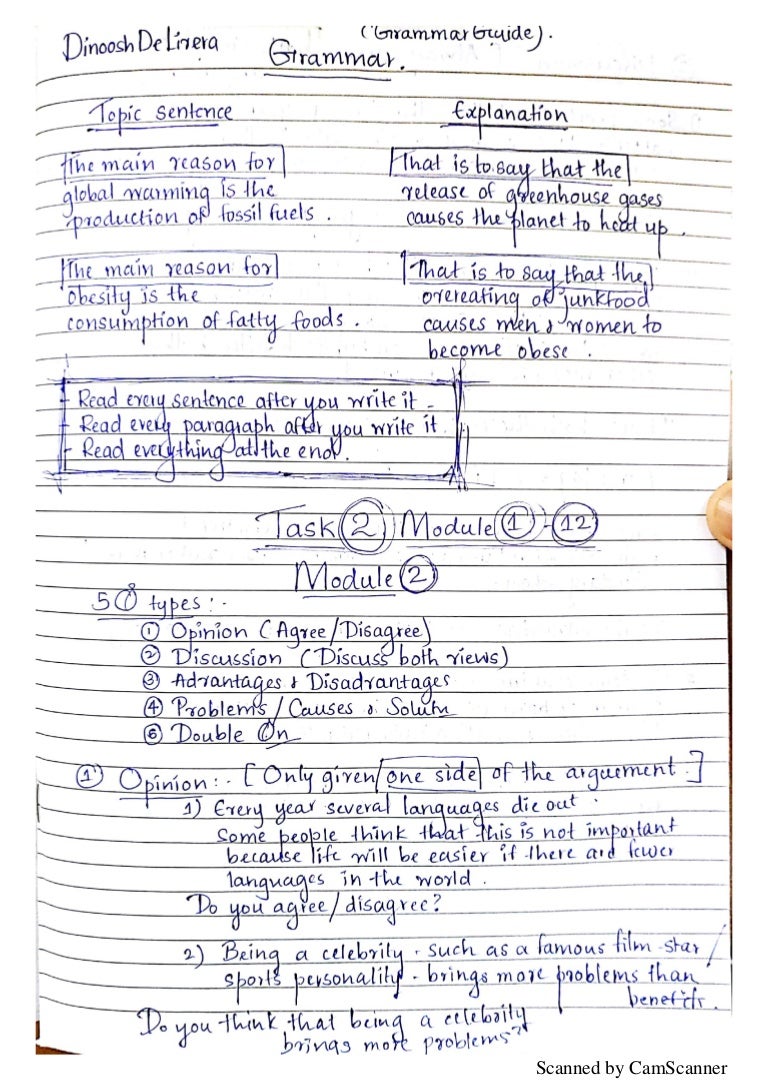 (Grammar Guide).
Dinoosh De Livera
Grammar.
Topic sentence
Explanation
The main reason for
global warming is the
production of fossil fuels.
That is to say that the
release of greenhouse gases
causes the planet to heat up.
The main reason for
obesity is the
consumption of fatty foods.
That is to say that the
overeating of junkfood
causes men & women to
become obese.
- Read every sentence after you write it -
- Read every paragraph after you write it
- Read everything at the end.
Task 2 Module 1 - 12
Module 2
5 Q types :-
① Opinion (Agree/Disagree)
② Discussion (Discuss both views)
③ Advantages & Disadvantages
④ Problems/Causes & Solutn
⑤ Double Qn
① Opinion :- [Only given one side of the arguement.]
1) Every year several languages die out.
Some people think that this is not important
because life will be easier if there are fewer
languages in the world.
Do you agree/disagree?
2) Being a celebrity - such as a famous film star/
sports personality - brings more problems than
benefits.
Do you think that being a celebrity
brings more problems?
Scanned by CamScanner